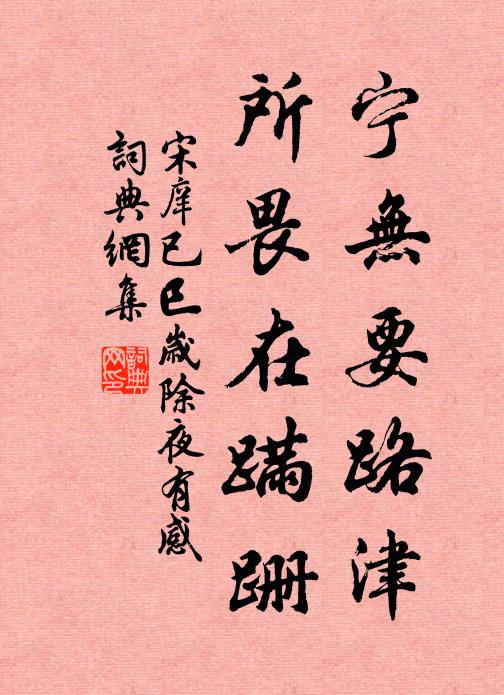 宁無要路津
所畏在蹣跚
宋庠己巳歲除夜有感
詞典網集
詞典网印